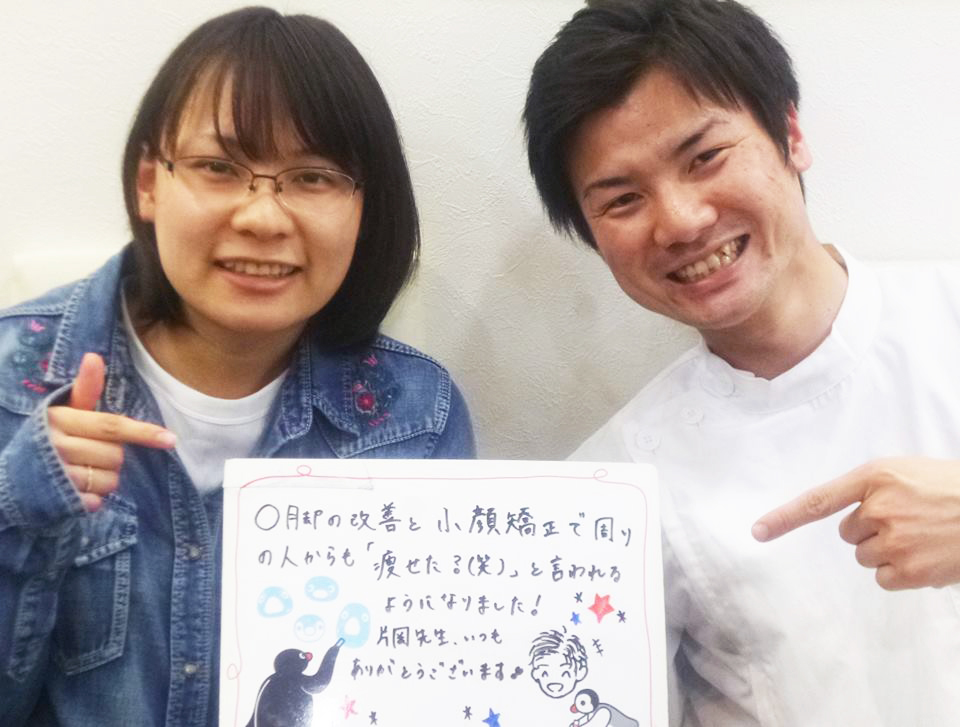 O脚の改善と小顔矯正で周り
の人からも「痩せたる(笑)」と言われる
ようになりました!
片岡先生、いつも
ありがとうございます♪